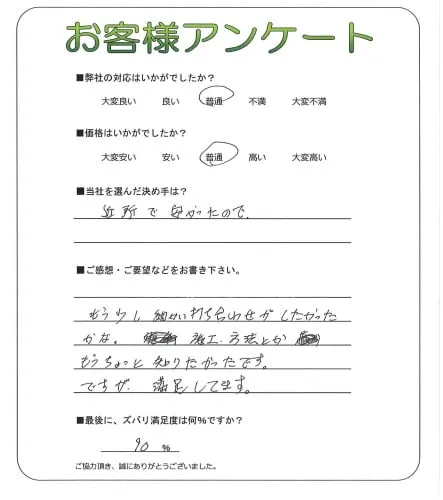 お客様アンケート
■弊社の対応はいかがでしたか?
大変良い 良い 普通 不満 大変不満
■価格はいかがでしたか?
大変安い 安い 普通 高い 大変高い
■当社を選んだ決め手は?
近所で良かったので、
■ご感想・ご要望などをお書き下さい。
もう少し細かい打ち合わせがしたかった
かな。施工、方法とか
もうちょっと知りたかったです。
ですが、満足してます。
■最後に、ズバリ満足度は何%ですか?
90 %
ご協力頂き、誠にありがとうございました。